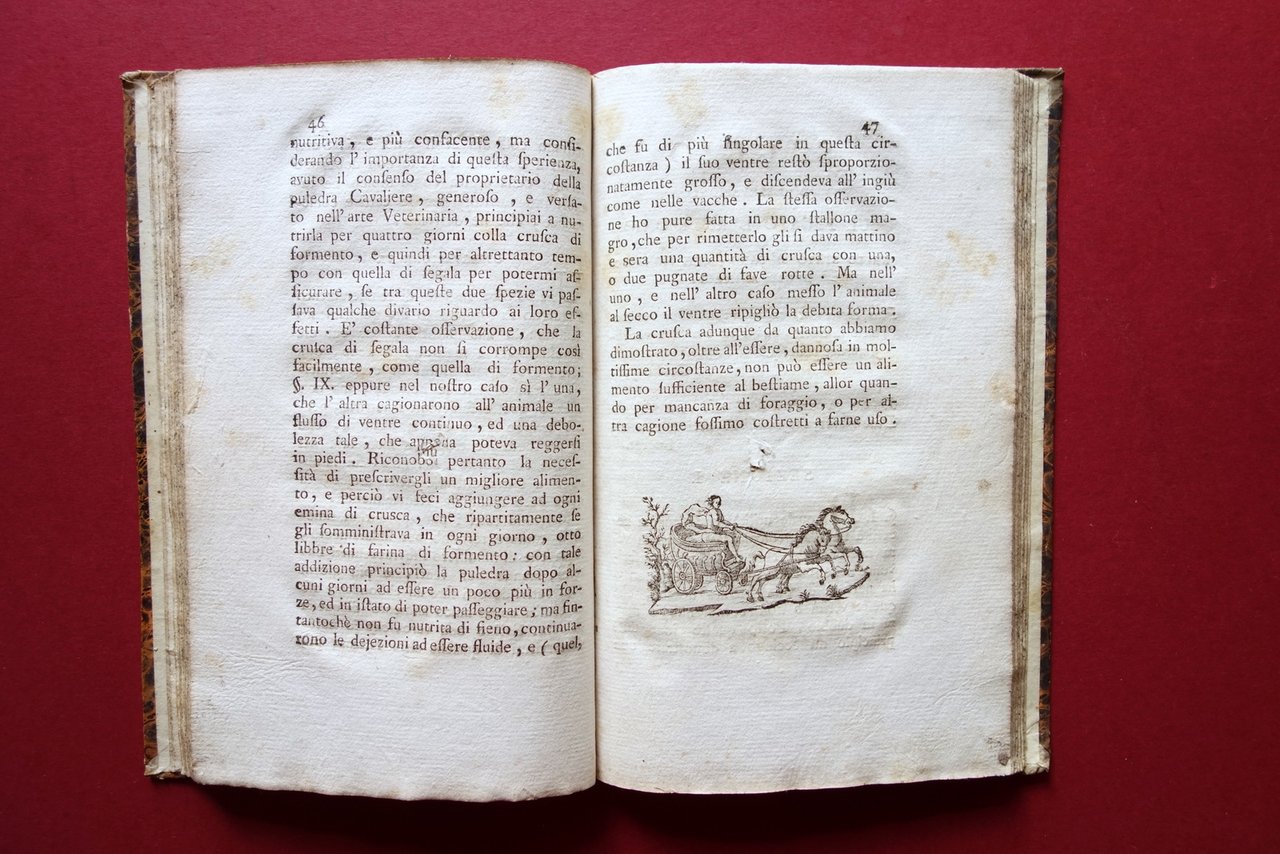 46
nutritiva, e più confacente, ma conſi-
derando l' importanza di queſta ſperienza,
avuto il conſenſo del proprietario della
puledra Cavaliere, generoſo, e verſa-
to nell' arte Veterinaria, principiai a nu-
trirla per quattro giorni colla cruſca di
formento, e quindi per altrettanto tem-
po con quella di ſegala per potermi aſ-
ſicurare, ſe tra queſte due ſpezie vi paſ-
ſava qualche divario riguardo ai loro ef-
fetti. E' coſtante oſſervazione, che la
cruſca di ſegala non ſi corrompe così
facilmente, come quella di formento;
§. IX. eppure nel noſtro caſo sì l' una,
che l' altra cagionarono all' animale un
fluſſo di ventre continuo, ed una debo-
lezza tale, che appena poteva reggerſi
più
in piedi. Riconobbi pertanto la neceſ-
ſità di preſcrivergli un migliore alimen-
to, e perciò vi feci aggiungere ad ogni
emina di cruſca, che ripartitamente ſe
gli ſomminiſtrava in ogni giorno, otto
libbre di farina di formento: con tale
addizione principiò la puledra dopo al-
cuni giorni ad eſſere un poco più in for-
ze, ed in iſtato di poter paſſeggiare; ma fin-
tantochè non fu nutrita di fieno, continua-
rono le dejezioni ad eſſere fluide, e (quel,
47
che fu di più ſingolare in queſta cir-
coſtanza) il ſuo ventre reſtò ſproporzio-
natamente groſſo, e diſcendeva all' ingiù
come nelle vacche. La ſteſſa oſſervazio-
ne ho pure fatta in uno ſtallone ma-
gro, che per rimetterlo gli ſi dava mattino
e sera una quantità di cruſca con una,
o due pugnate di fave rotte. Ma nell'
uno, e nell' altro caſo meſſo l' animale
al ſecco il ventre ripigliò la debita forma.
La cruſca adunque da quanto abbiamo
dimoſtrato, oltre all'eſſere, dannoſa in mol-
tiſſime circoſtanze, non può eſſere un ali-
mento ſufficiente al beſtiame, allor quan-
do per mancanza di foraggio, o per al-
tra cagione foſſimo coſtretti a farne uſo.